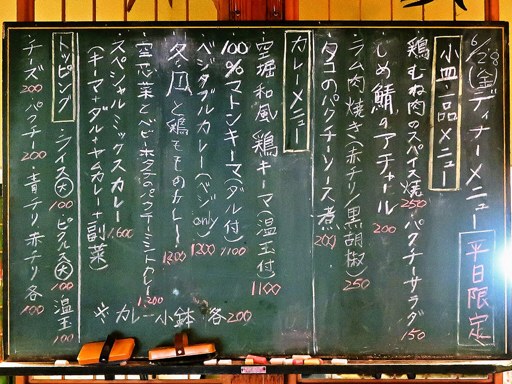 6/28(金)ディナーメニュー 平日限定
小皿一品メニュー
鶏むね肉のスパイス焼 250 ・パクチーサラダ 150
しめ鯖のアチャール 200
ラム肉焼き(赤チリ/黒胡椒) 250
タコのパクチーソース煮 200
カレーメニュー
空堀和風鶏キーマ(温玉付) 1100
100%マトンキーマ(ダル付) 1100
ベジタブルカレー(ベジonly) 1200
冬瓜と鶏ももカレー 1200
空芯菜とベビーホタテのパクチーミントカレー 1,200
・スペシャルミックスカレー 1,600
(キーマ+ダル+ヤサイカレー+副菜)
※カレー小鉢 各200
トッピング ・ライス大 100 ピクルス大 100 温玉 100
チーズ 200 パクチー 200 青チリ 赤チリ各 100